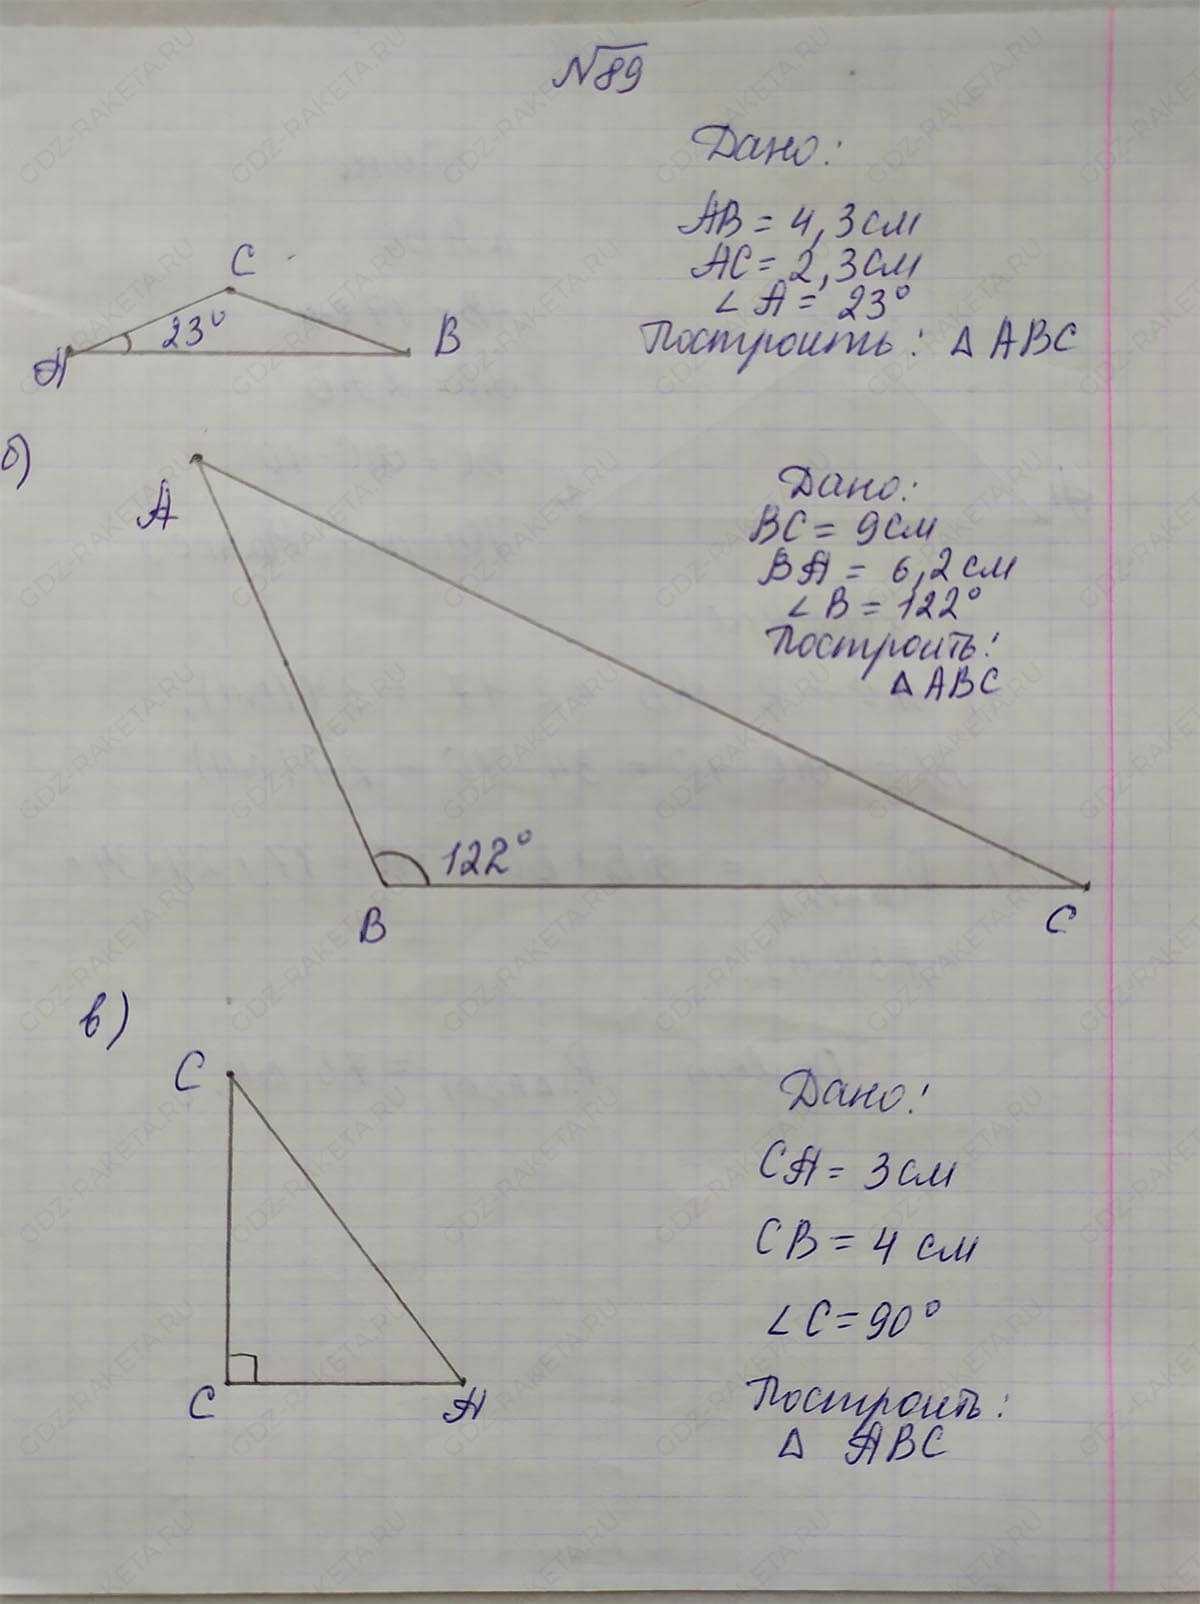 №89
Дано:
AB = 4,3 см
AC = 2,3 см
∠ A = 23°
Построить: Δ ABC
C
23°
A
B
б)
A
Дано:
BC = 9 см
BA = 6,2 см
∠ B = 122°
Построить:
Δ ABC
122°
B
C
в)
C
Дано:
CA = 3 см
CB = 4 см
∠ C = 90°
Построить:
Δ ABC
C
A
GDZ-RAKETA.RU